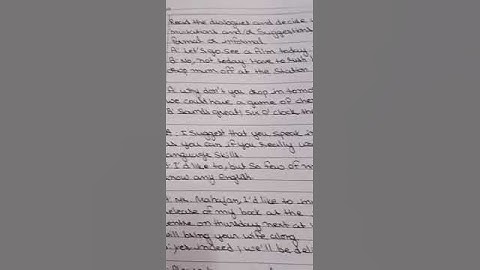 Read the dialogues and decide
invitations and/or suggestions
formal or informal
A: Let's go see a film today.
B: No, not today. I have to rush
drop mum off at the station
A: why don't you drop in tomo
we could have a game of ches
B: Sounds great! Six o' clock the
I suggest that you speak
as you can if you really
language skill.
I'd like to, but so few of m
know any English.
Mr. Mahajan, I'd like to
release of my book at the
centre on thursday next at
will bring your wife along
yes indeed, we'll be del